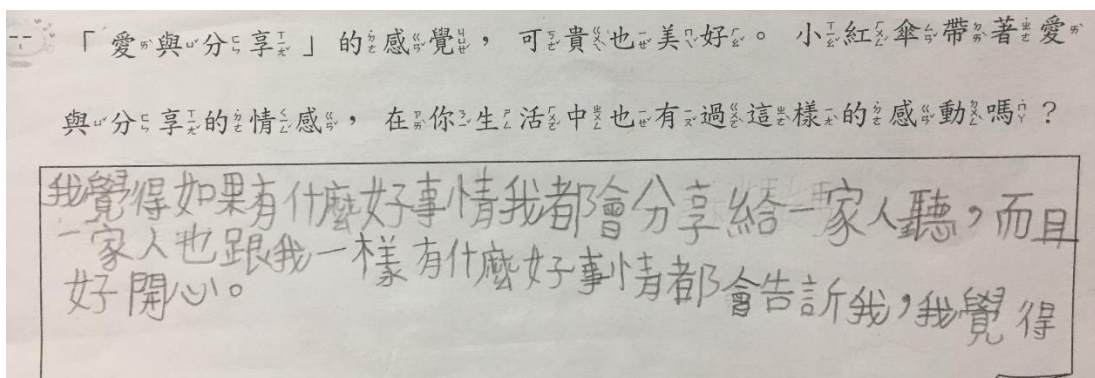 「愛與分享」的感覺，可貴也美好。小紅傘帶著愛
與分享的情感，在你生活中也有過這樣的感動嗎？
我覺得如果有什麼好事情我都會分享給一家人聽，而且
一家人也跟我一樣有什麼好事情都會告訴我，我覺得
好開心。